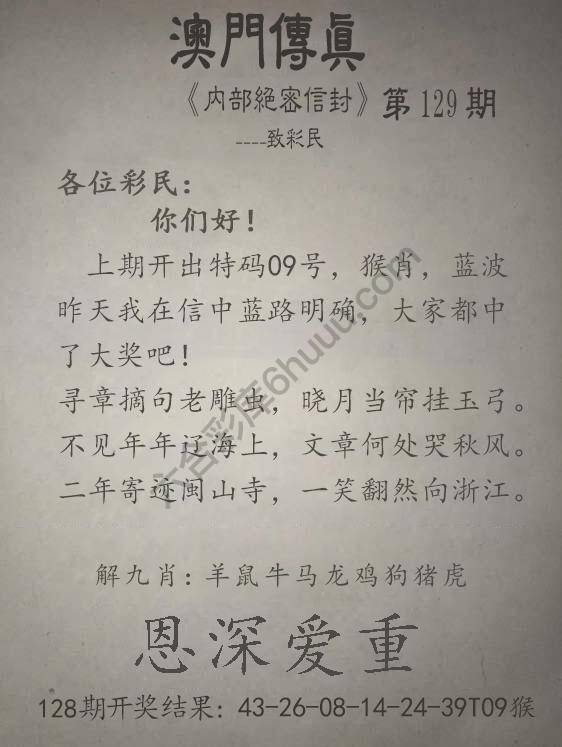 澳門傳眞
《内部絕密信封》第129期
----致彩民
各位彩民：
你们好！
上期开出特码09号，猴肖，蓝波
昨天我在信中蓝路明确，大家都中
了大奖吧！
寻章摘句老雕虫，晓月当帘挂玉弓。
不见年年辽海上，文章何处哭秋风。
二年寄迹闽山寺，一笑翻然向浙江。
解九肖：羊鼠牛马龙鸡狗猪虎
恩深爱重
128期开奖结果：43-26-08-14-24-39T09猴
六合彩库6huuu.com